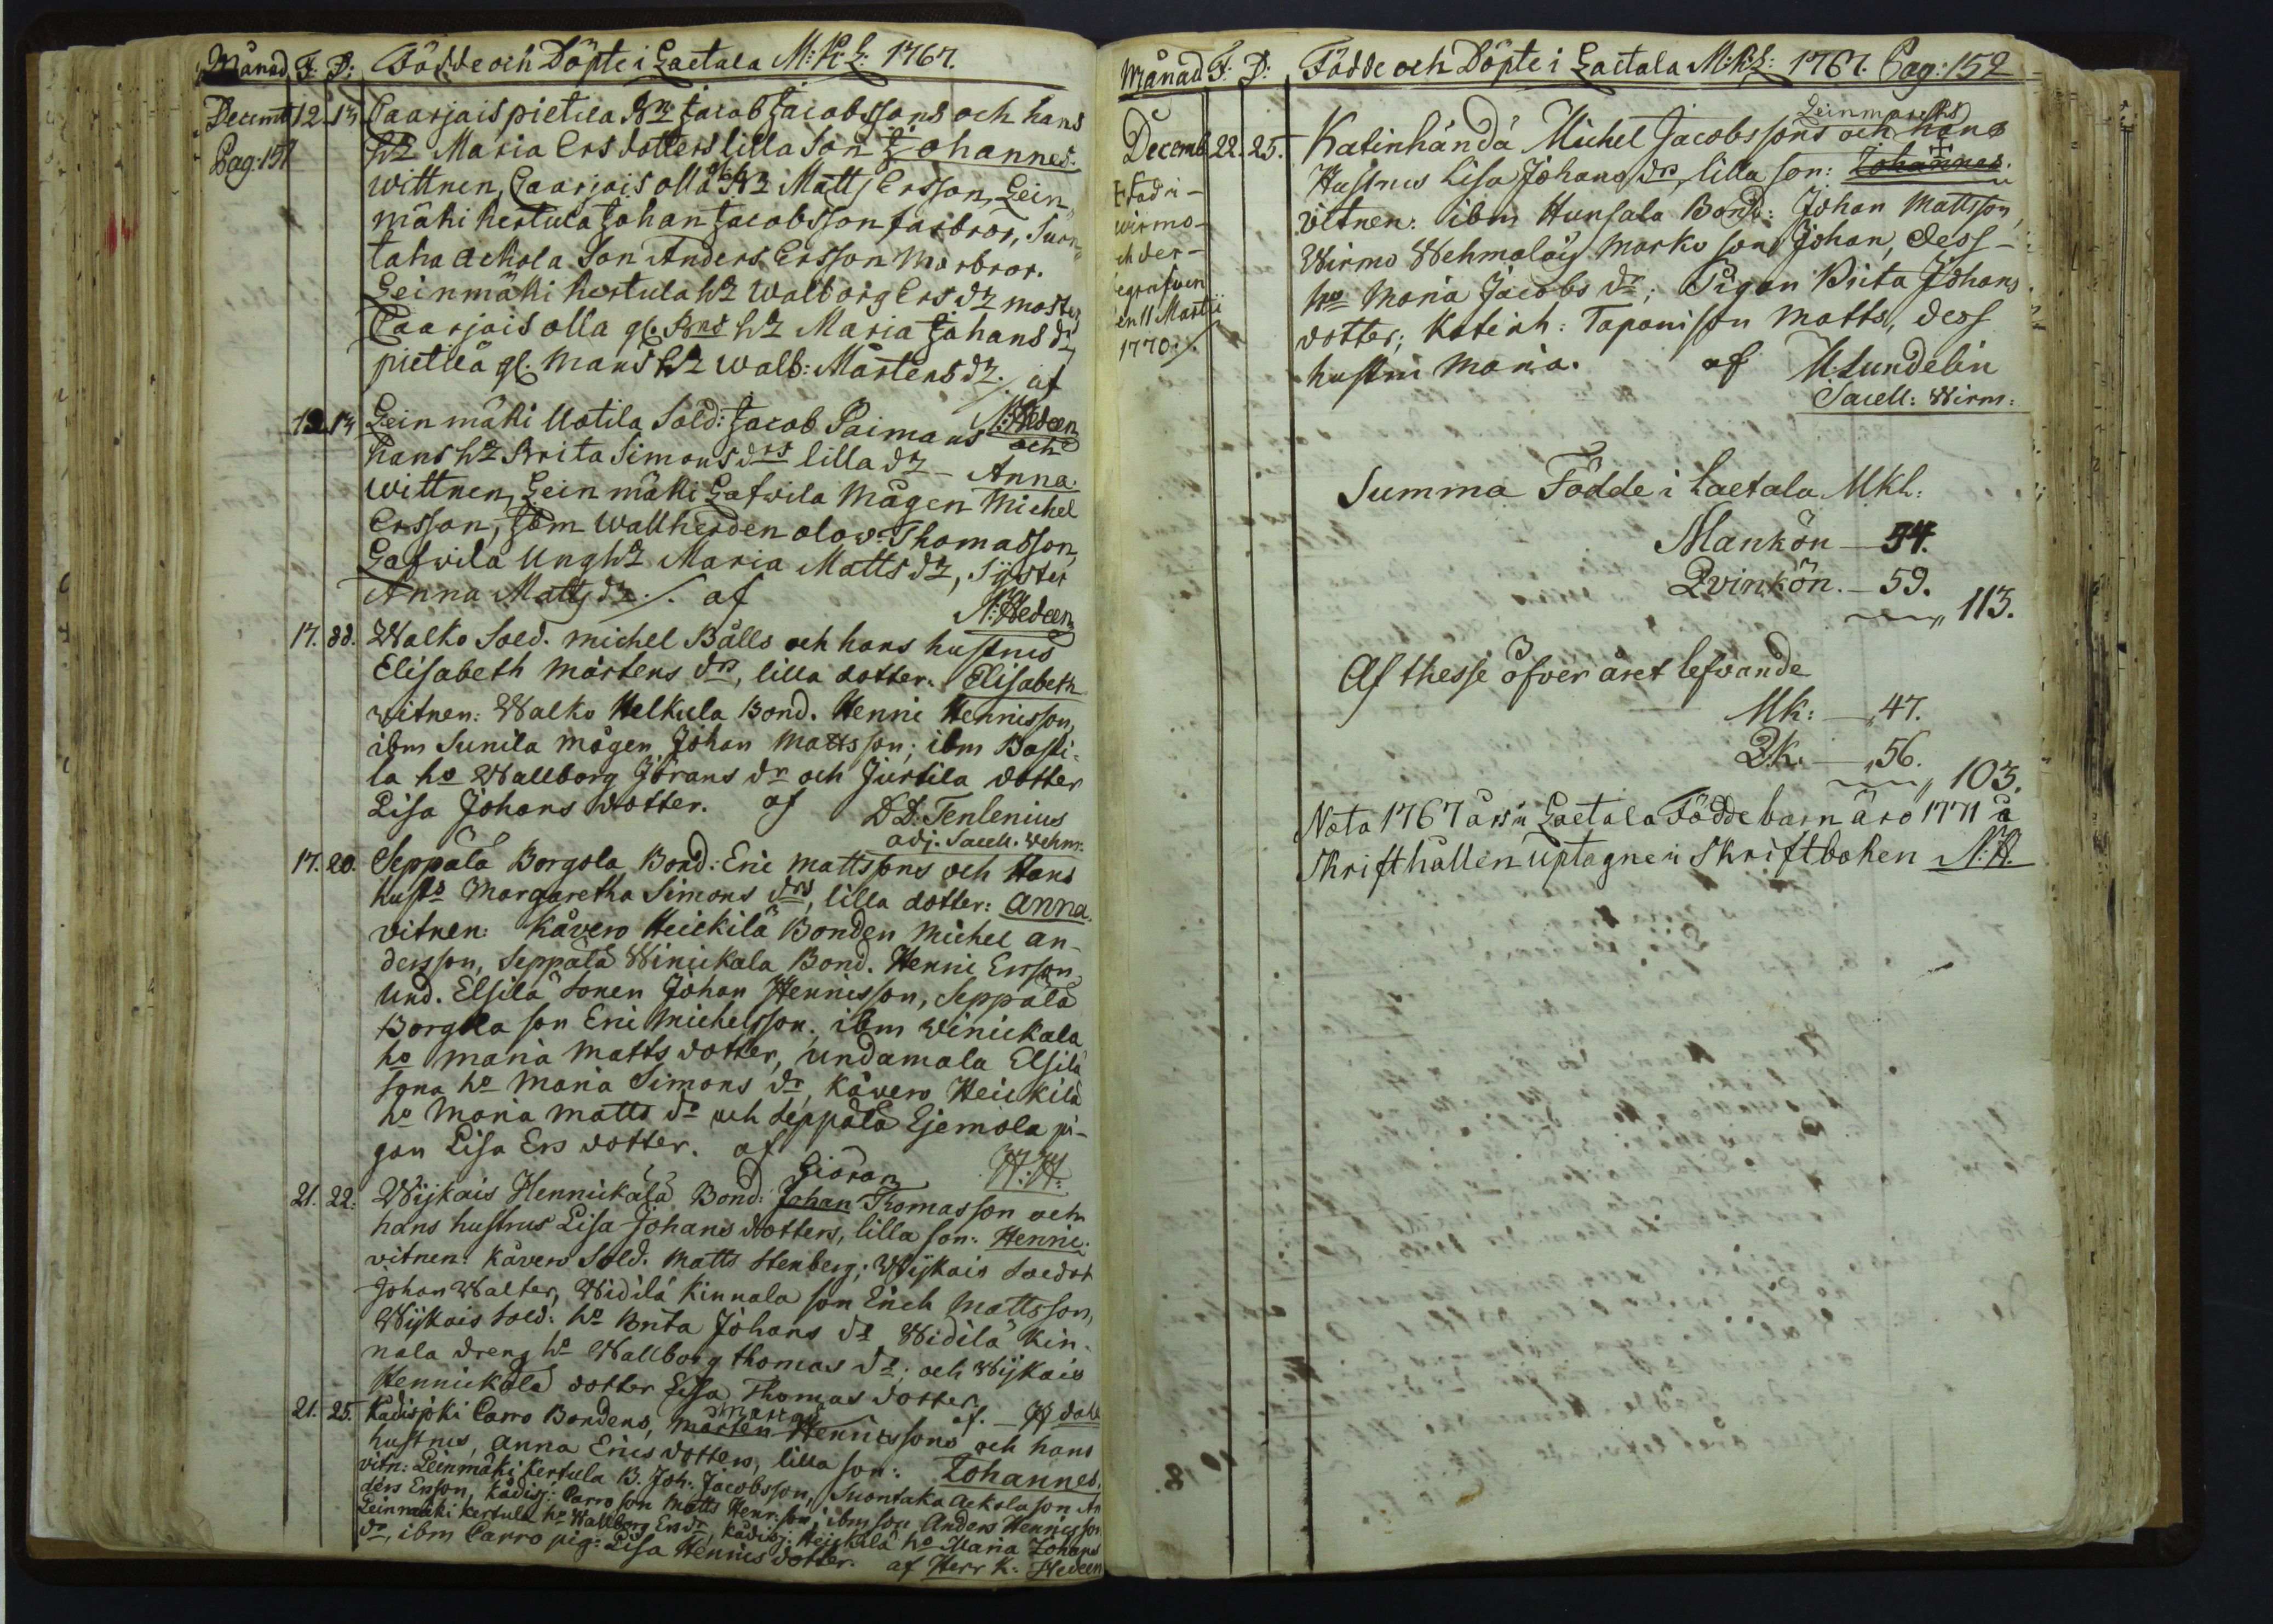 Månad F: D: Födde och Döpte i Laetala M:K:L: 1767.
Decemb 12. 13. Caarjais pietilä Bn: Jacob Jacobssons och hans
Pag: 151 h2 Maria Ersdotters lilla Son Johannes.
wittnen, Caarjais olla gl: Matts Ersson, Lein
mäki kertula Johan Jacobsson farbror, Suon
taka Ackola Son Anders Ersson Morbror.
Leinmäki kertula h2 Walborg Ers d2 moster
Caarjais olla gl. Bns h2 Maria Johans d2
pietilä gl. Mans h2 Walb: Mårtens d2. / af
N: Hedeen
12 13 Leinmäki Uotila Sold: Jacob Paimans och
hans h2 Brita Simons drs lilla d2 - Anna.
wittnen, Leinmäki Lafwila Mågen Michel
Ersson, Ibm Wallherden olow: Thomasson,
Lafwila Ung h2 Maria Matts d2, Syster
Anna Matts d2 ./. af
N: Hedeen
17. dd. Walko Sold. Michel Bålls och hans hustrus
Elisabeth Mårtens drs, lilla dotter. Elisabeth
vitnen: Walko Helkula Bond. Henric Henricsson,
ibm Sunila mågen Johan Mattsson; ibm Basti-
la ho Wallborg Jörans dr och Jurtila dotter
Lisa Johans dotter. af D D. Tenlenius
adj. Sacell. Wehm:
17. 20. Seppälä Borgola Bond: Eric Mattssons och Hans
hust. Margaretha Simons drs, lilla dotter: Anna.
vitnen: Kåvero Heickilä Bonden Michel An-
dersson, Seppälä Winickala Bond. Henric Ersson,
Und. Elsilä Sonen Johan Henricsson, Seppälä
Borgola son Eric Michelsson; ibm Winickala
ho Maria Matts dotter, undamala Elsilä
sona ho Maria Simons dr, Kåvero Heickilä
ho Maria Matts dr och Seppälä Ejemola pi-
gan Lisa Ers dotter. af H. H.
Giöran
21. 22: Wijkais Hennickala Bond: Johan Thomasson och
hans hustrus Lisa Johans dotters, lilla son: Henric.
vitnen: Kåvero Sold. Matts Stenberg; Wijkais Soldat
Johan Walter, Widilä Kinnala son Erich Mattsson,
Wijkais Sold: ho Brita Johans dr Widilä Kin-
nala dreng ho Wallborg Thomas dr; och Wijkais
Hennickala dotter Lisa Thomas dotter.
af. H dahl
Mårten
21. 25. Kådisjoki Carro Bondens, Mårten Henricssons och hans
hustrus, Anna Erics dotters, lilla son: Johannes,
vitn: Leinmäki Kertula B. Joh: Jacobsson, Suontaka Ackola son An
ders Ersson, Kådisj: Carro son Matts Henr: son, ibm son Anders Henricsson
Leinmäki Kertula ho Wallborg Ers dr, Kådisj: Heickilä ho Maria Johans
dr, ibm Carro pig: Lisa Henrics dotter. af Herr K: Hedeen
Månad F: D: Födde och Döpte i Laetala M:K:L: 1767. Pag: 152
Leinmäki
Decemb. 22. 25. Katinhändä Michel Jacobssons och hans
Hustrus Lisa Johans drs, lilla son: Johannes.
vittnen: ibm Hunsala Bond: Johan Mattsson,
Wirmo Wehmalais Marko son Johan, dess
ho Maria Jacobs dr; Pigan Brita Johans
dotter; Katinh: Taponis son Matts, dess
hustru Maria. af M: Lundelin
Sacell: Wirm:
död i
wirmo
ch der
egrafwen
en 11 Martii
1770 ./.
Summa Födde i Laetala Mkl:
Mankön — 54.
Qvinkön. — 59.
113.
Af thesse öfver året lefvande
Mk: — 47.
Qk. — 56.
103.
Nota 1767 års i Laetala Födde barn äro 1771 å
Skrifthållen uptagne i Skriftboken N: H.